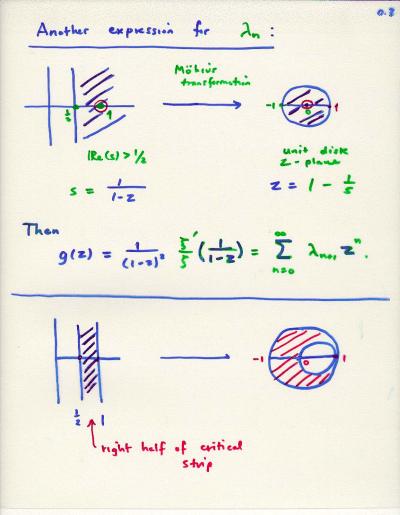 0.8
Another expression for λₙ :
Möbius
transformation
1/2 1 -1 0 1
|Re(s) > 1/2
unit disk
z-plane
s = 1/(1-z)
z = 1 - 1/s
Then
g(z) = 1/(1-z)² ξ'/ξ (1/(1-z)) = ∑_{n=0}^{∞} λₙ₊₁ zⁿ.
-1 0 1
1/2 1
right half of critical
strip